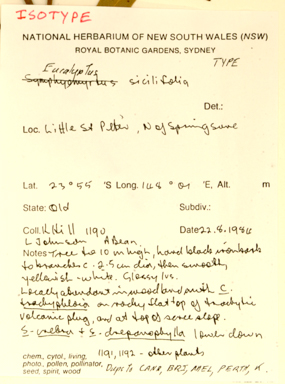 ISOTYPE
NATIONAL HERBARIUM OF NEW SOUTH WALES (NSW)
ROYAL BOTANIC GARDENS, SYDNEY
TYPE
Eucalyptus
sicilifolia
Det.:
Loc. Little St Peter, N of Springsure
Lat. 23° 55 'S Long. 148° 01 'E, Alt. m
State: Qld Subdiv.:
Coll. K Hill 1190 Date 22.8.1984
L Johnson A Bean
Notes Tree to 10 m high, hard black ironbark
to branches c. 2-5 cm dia, then smooth,
yellowish-white. Glossy lvs.
Locally abundant in woodland with C.
trachyphloia on rocky flat top of trachytic
volcanic plug, and at top of scree slope.
E. crebra & E. drepanophylla lower down
chem, cytol, living, 1191, 1192 - other plants
photo, pollen, pollinator,
seed, spirit, wood Dups to CANB, BRI, MEL, PERTH, K.